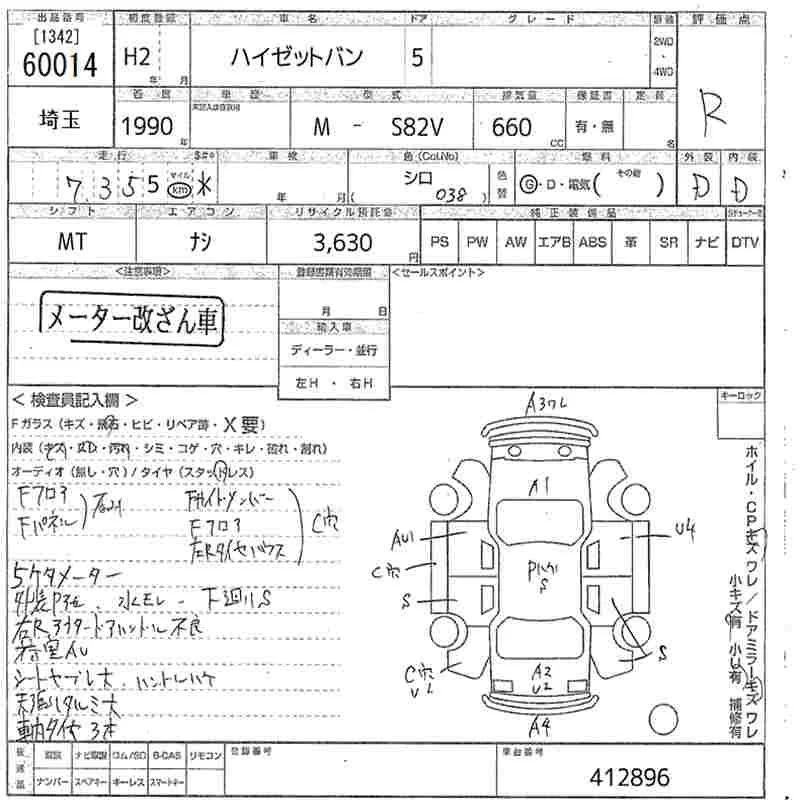 出品番号 初度登録 車名 ドア グレード 駆動 評価点
[1342]
60014 H2 年 月 ハイゼットバン 5 2WD・4WD R
埼玉
西暦 車歴 型式 排気量 保証書 定員
1990年 M - S82V 660 CC 有・無 名
走行 車検 色(Col.No) 燃料 外装 内装
7.355 マイル km * 年 月( シロ 038) 色替 G・D・電気( その他 ) D D
シフト エアコン リサイクル預託金 純正装備品
MT ナシ 3,630円 PS PW AW エアB ABS 革 SR ナビ DTV
<注意事項> 登録書類有効期限 <セールスポイント>
メーター改ざん車
月 日
輸入車
ディーラー・並行
左H・右H
キーロック
<検査員記入欄>
Fガラス(キズ・飛石・ヒビ・リペア跡・X要)
内装(キズ・汚れ・シミ・コゲ・穴・キレ・破れ・割れ)
オーディオ(無し・穴)/タイヤ(スタッドレス)
Fフロア
Fパネル
Fサイドメンバー
Fフロア
左Rタイヤハウス
C穴
5ケタメーター
外装P全 水モレ 下廻りS
右Rアウタードアハンドル不良
シートヤブレ大 ハンドルハゲ
A3ワレ
A1
AU1
U4
C穴
S
S
S
C穴
A2
U2
A4
ホイル・CPキズ ワレ/ドアミラーキズ ワレ
小キズ有 小U有 補修有
後送品 取説 ナビ取説 ロム/SD B-CAS リモコン 登録番号 車台番号
ナンバー スペアキー キーレス スマートキー 412896